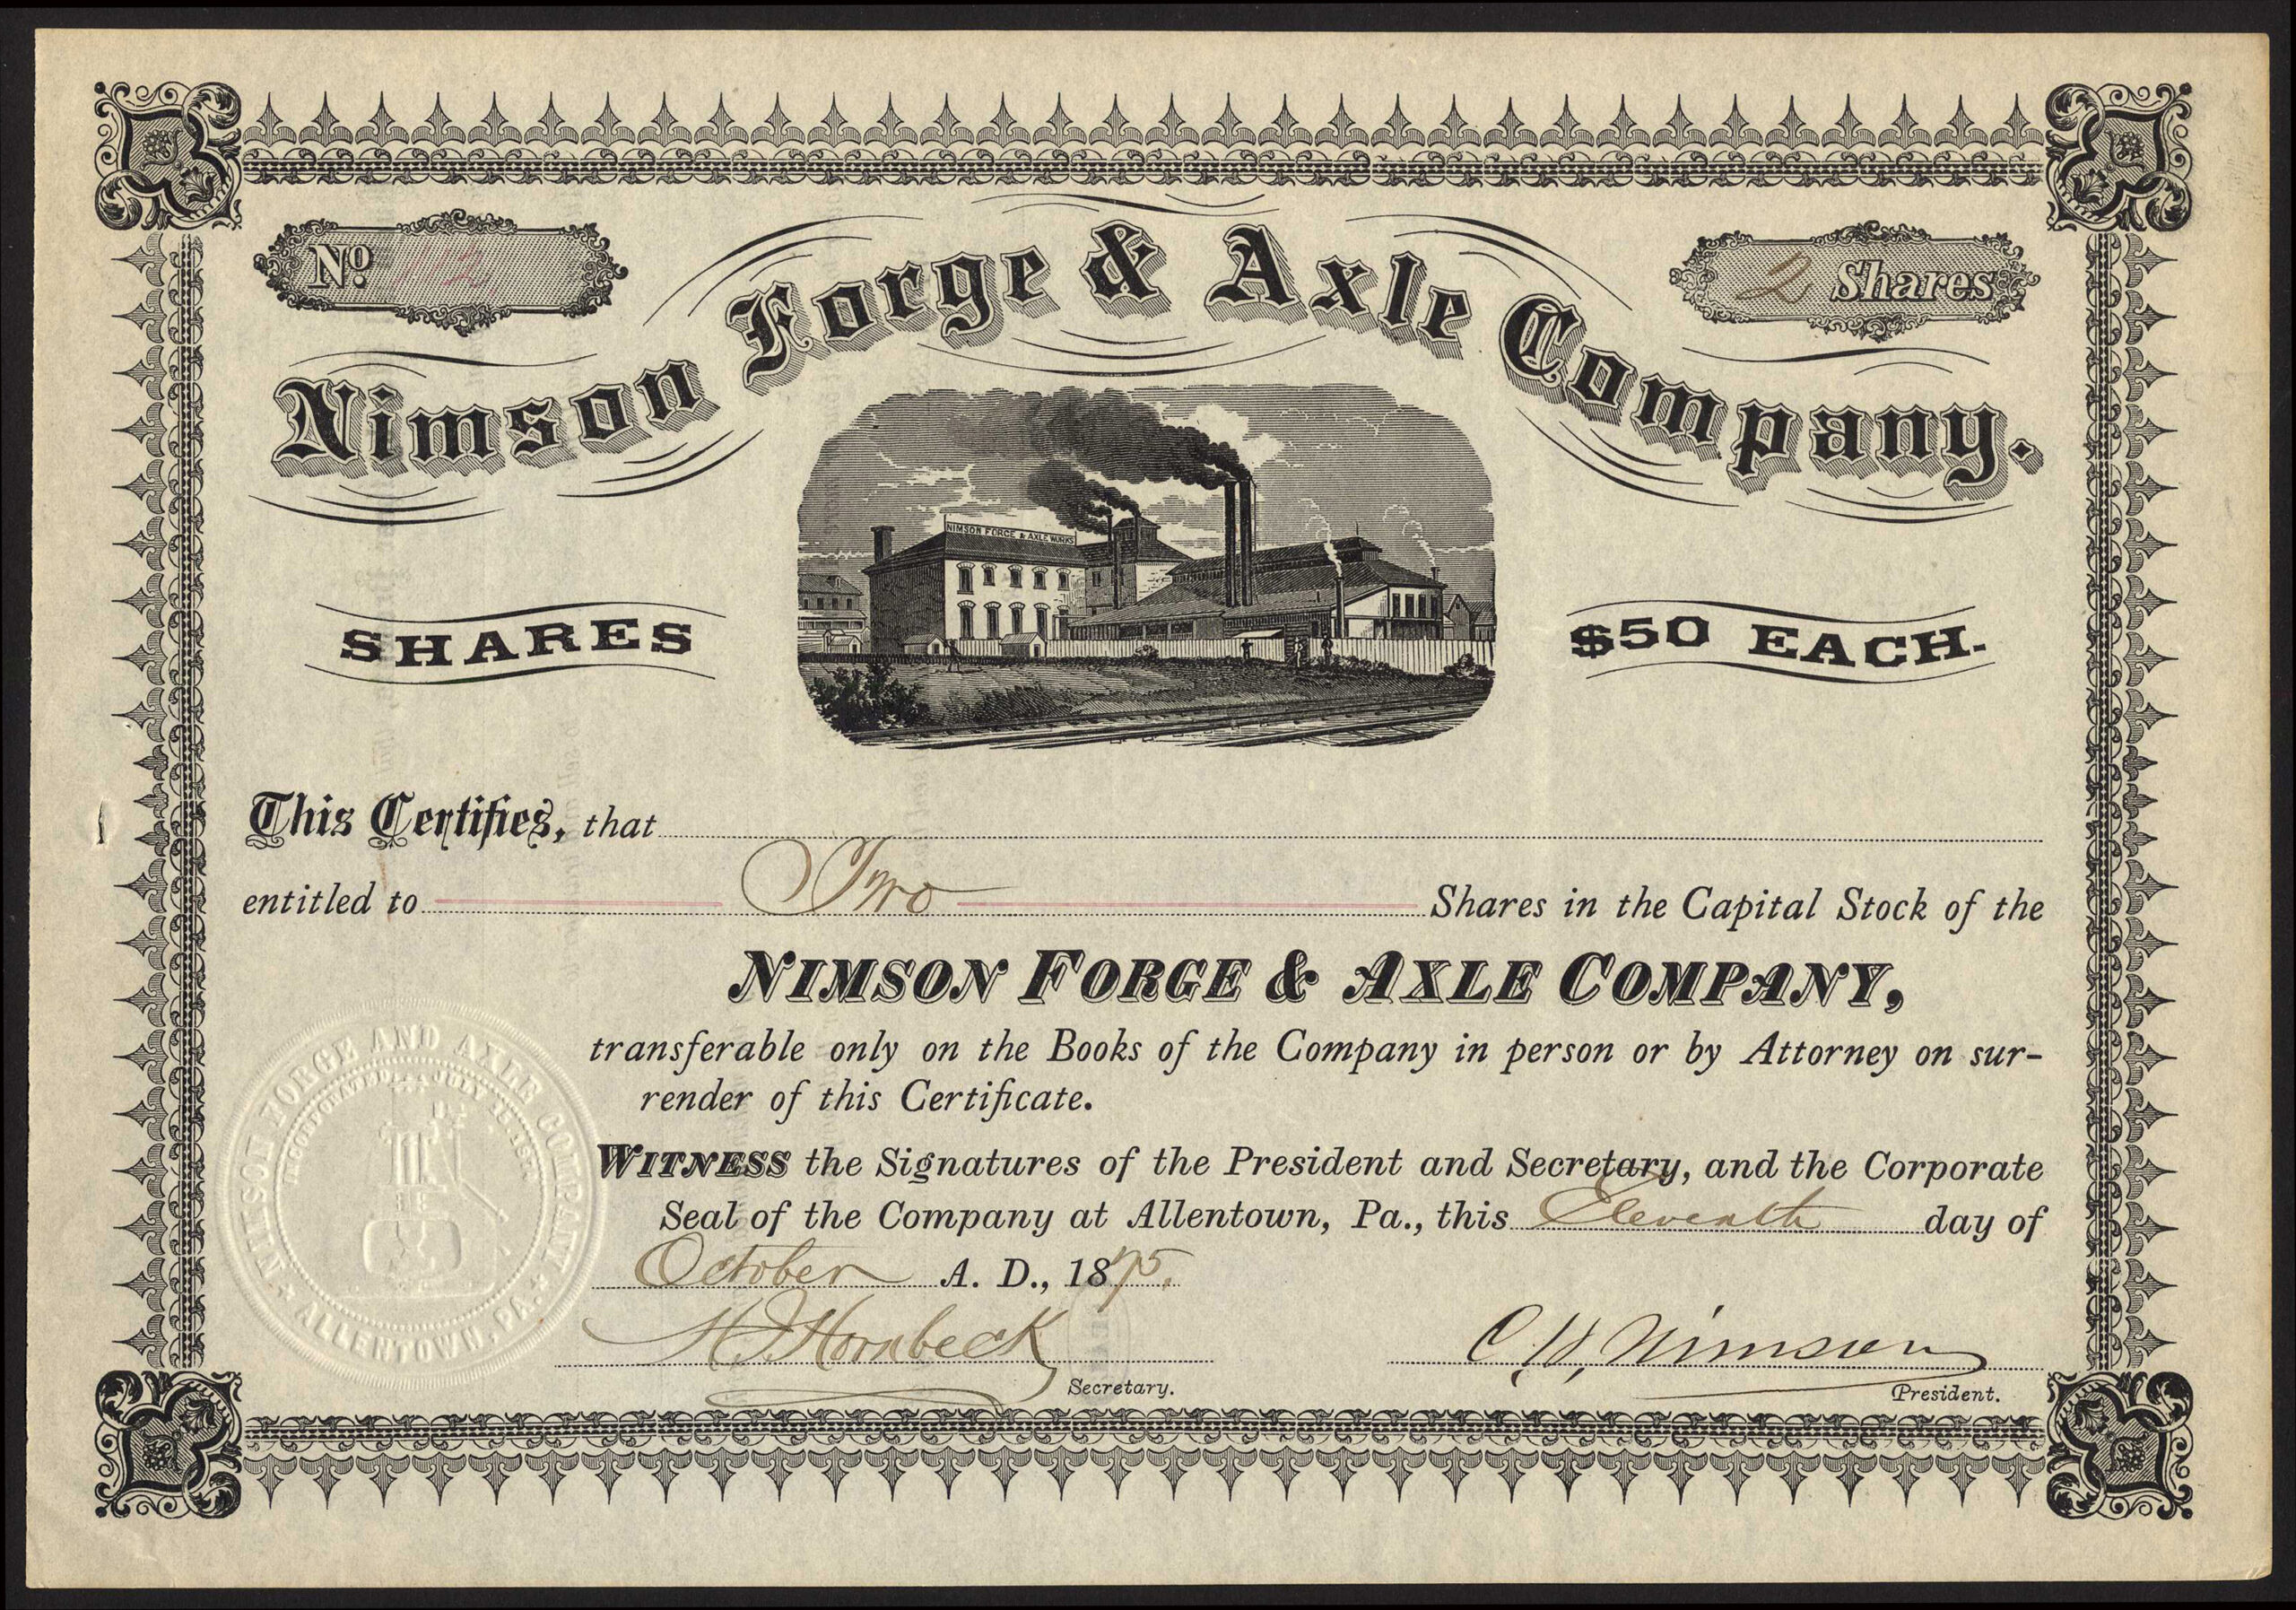 No. 12
2 Shares
Nimson Forge & Axle Company.
NIMSON FORGE & AXLE WORKS
SHARES
$50 EACH.
This Certifies, that
entitled to Two Shares in the Capital Stock of the
NIMSON FORGE & AXLE COMPANY,
transferable only on the Books of the Company in person or by Attorney on sur-
render of this Certificate.
WITNESS the Signatures of the President and Secretary, and the Corporate
Seal of the Company at Allentown, Pa., this Eleventh day of
October A. D., 1875.
NIMSON FORGE AND AXLE COMPANY
INCORPORATED JULY
ALLENTOWN, PA.
H. J. Hornbeck
Secretary.
C. H. Nimson
President.